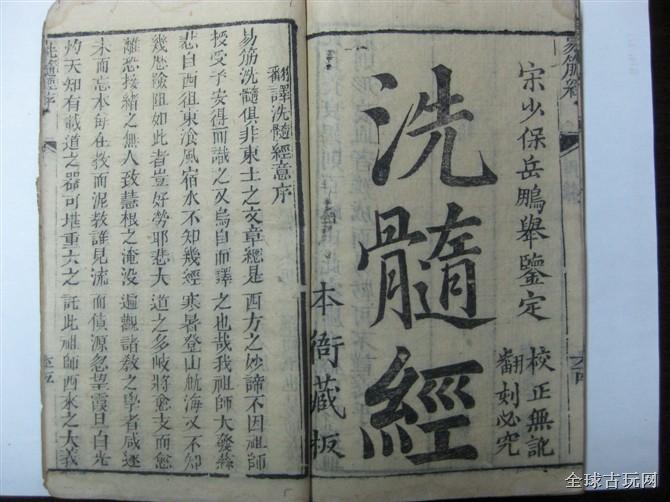 易筋經
宋少保岳鵬舉鑒定
校正無訛
翻刻必究
洗髓經
本衙藏板
翻譯洗髓經意序
易筋洗髓俱非東土之文章總是西方之妙諦不因祖師
授受予安得而識之又烏自而譯之也哉我祖師大發慈
悲自西徂東飡風宿水不知幾經寒暑登山航海又不知
幾歷險阻如此者豈好勞耶悲大道之多岐將愈支而愈
離恐接緒之無人致慧根之淹沒遍觀諸教之學者咸逐
末而忘本每在教而泥教誰見流而源忽望霞旦白光
灼天知有載道之器可堪重大之託此祖師西來之大義
洗髓經序
全球古玩网